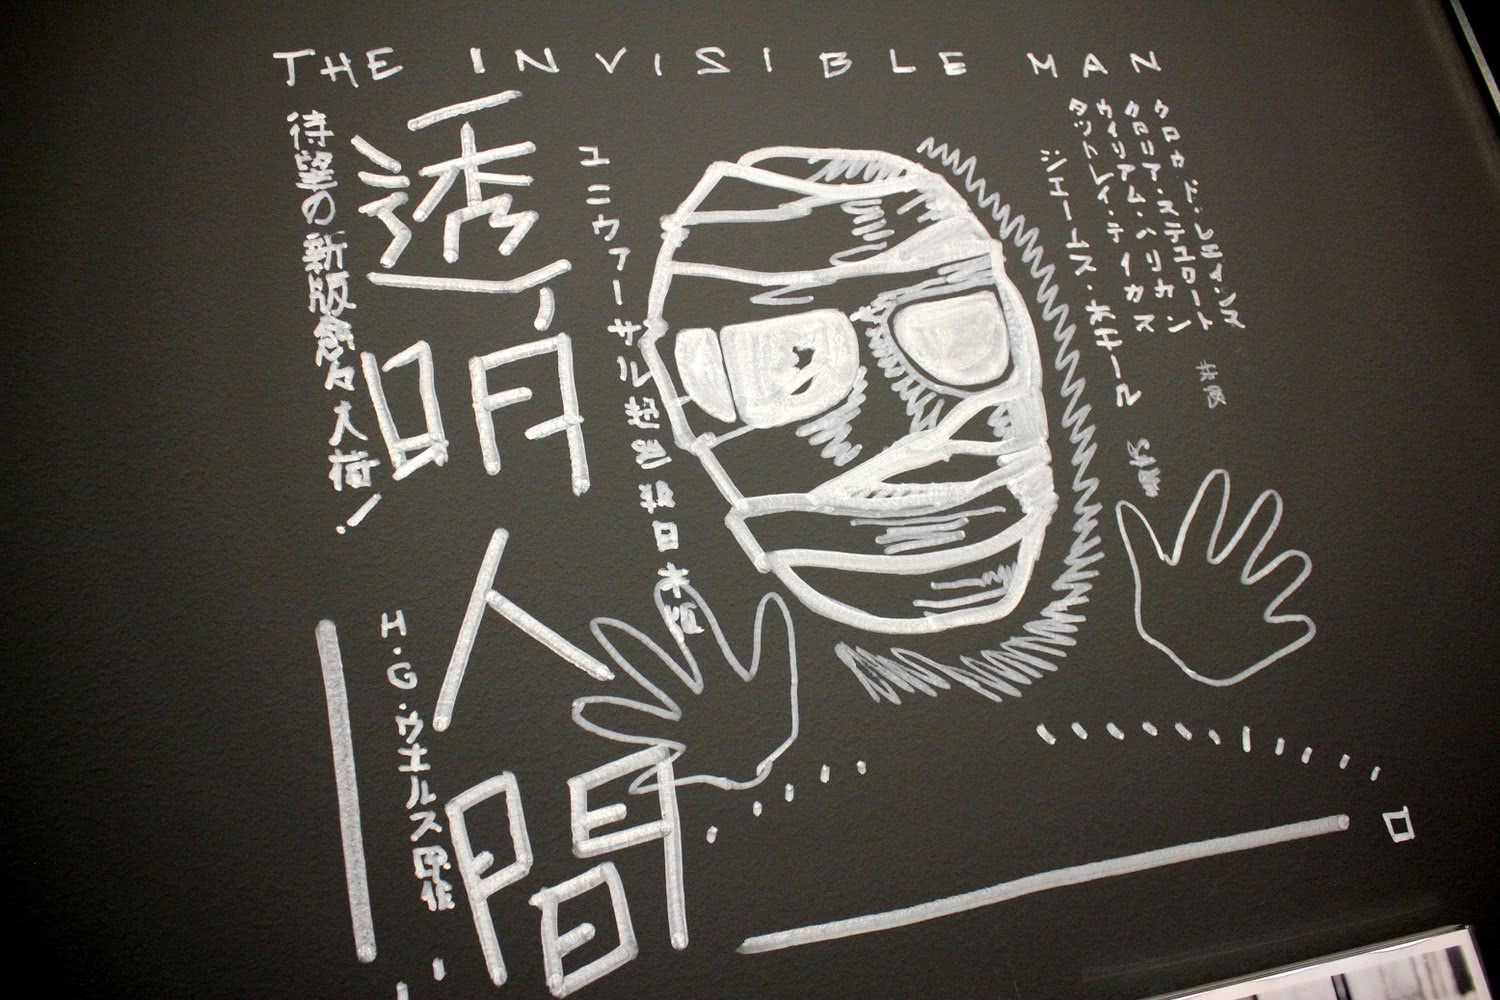 THE INVISIBLE MAN
クロード・レインズ
グロリア・スチュワート
ウィリアム・ハリガン
ダッドレイ・ディガス
ジェームス・ホエール
ユニヴァーサル 日本版
透明人間
待望の新版愈々大荷!
H・G・ウエルス原作